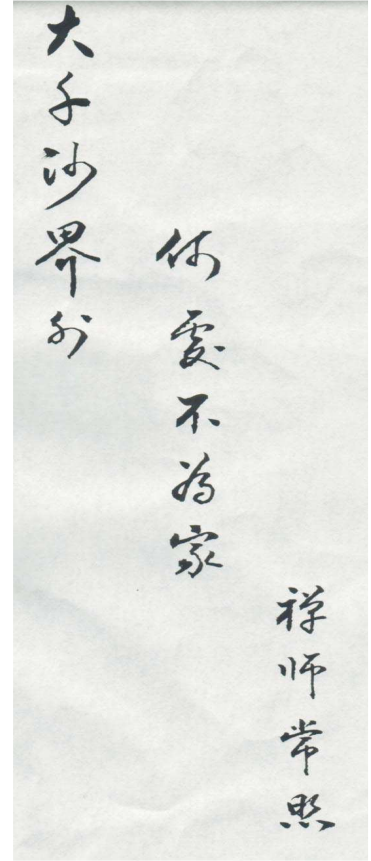 大千沙界外
何處不為家
禅师常照